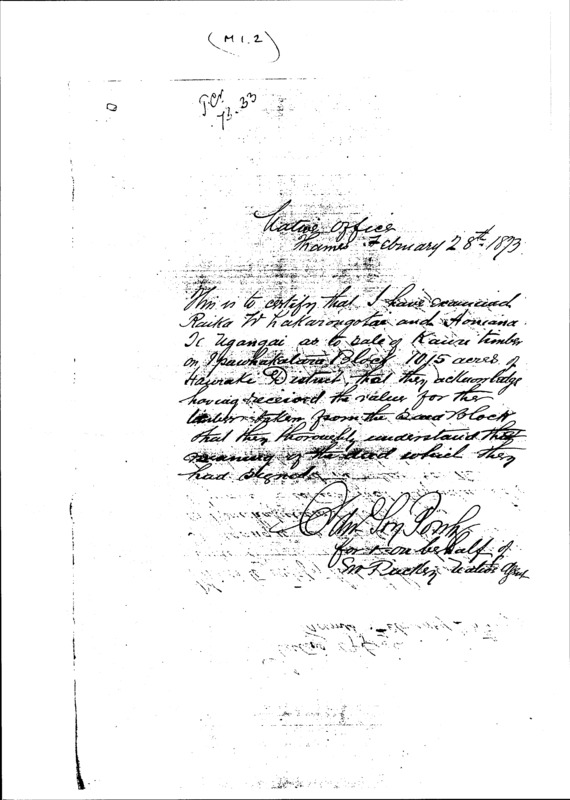 (M 1.2)
T.C.
73.33
Native Office
Thames February 28th 1873.
This is to certify that I have examined
Raika Whakarongotai and
Te Ngangai as to sale of Kauri timber
on Block 1015 acres of
Hauraki District, that they acknowledge
having received the value for the
timber taken from the said Block
that they thoroughly understand the
meaning of the deed which they
had signed
for & on behalf of
Native Agent